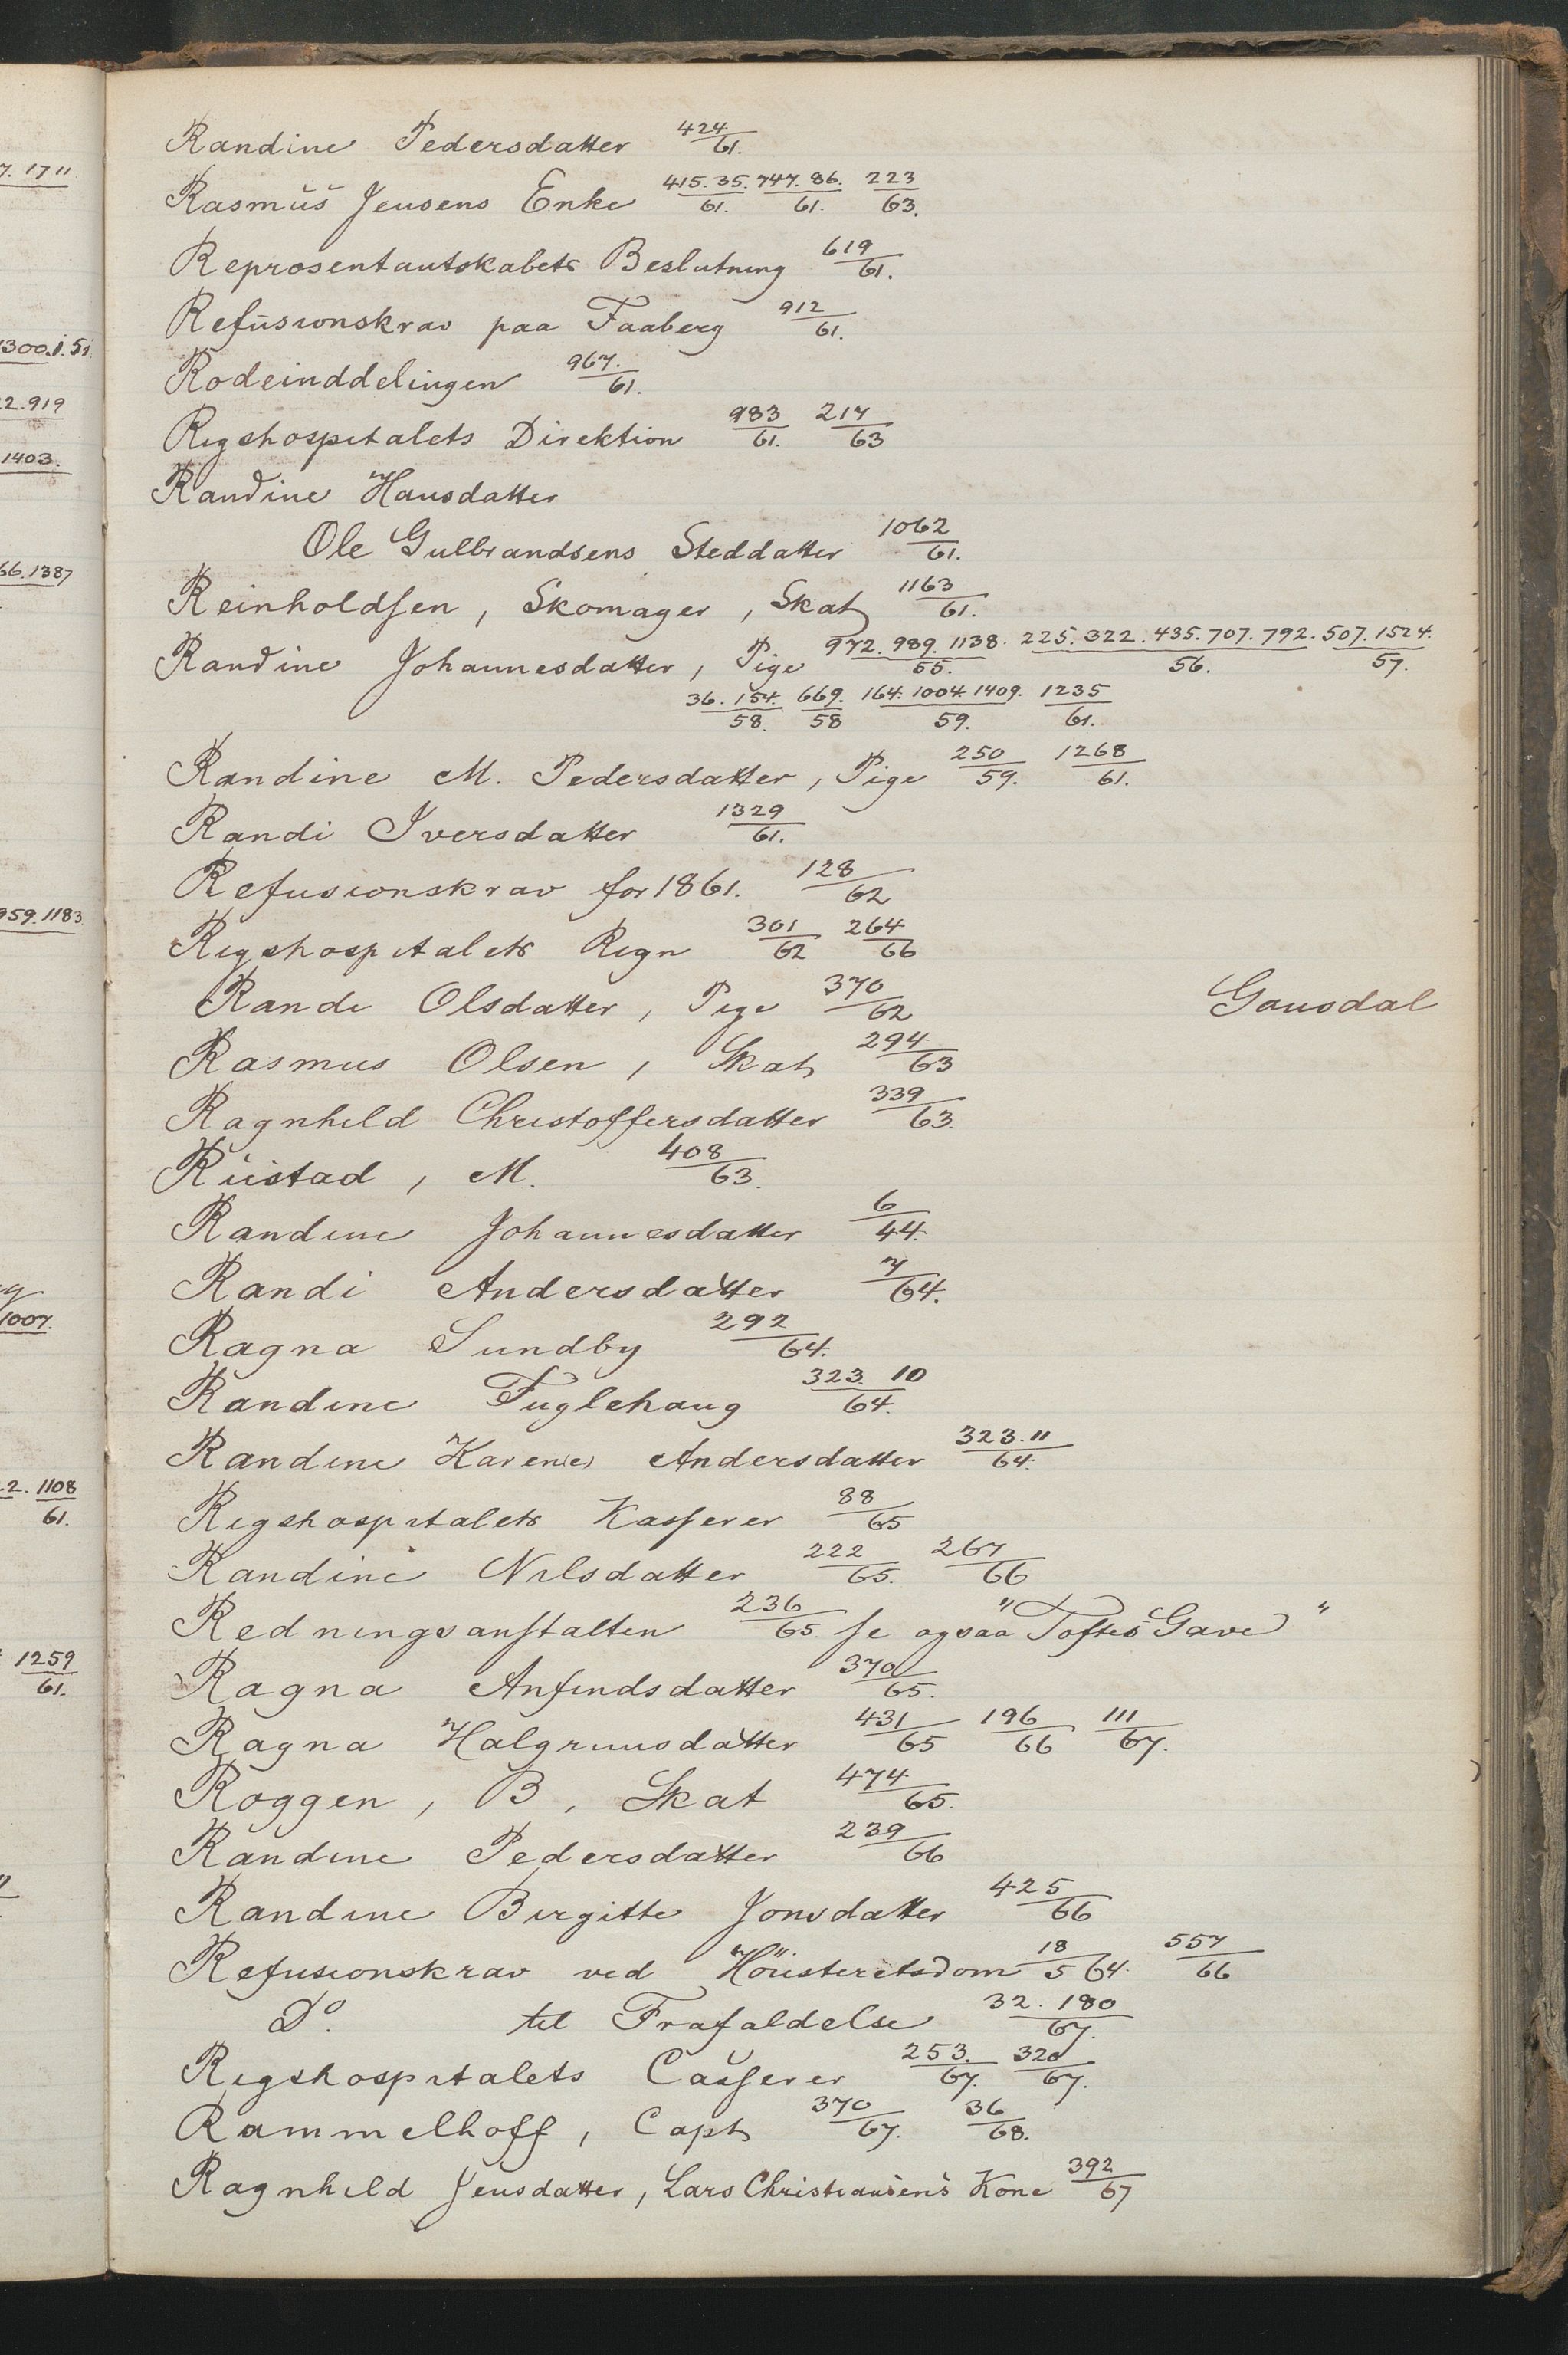 7. 1711
300.1.51
22.919
1403.
66.1387
959.1183
1007.
2. 1108
61.
1259
61.
Randine Pedersdatter 424/61.
Rasmus Jensens Enke 415.35./61. 747.86./61. 223/63.
Reprosentantskabets Beslutning 619/61.
Refusionskrav paa Faaberg 912/61.
Rodeinddelingen 967./61.
Rigshospitalets Direktion 983/61. 217/63
Randine Hansdatter
Ole Gulbrandsens Steddatter 1062/61.
Reinholdsen, Skomager, Skat 1163/61.
Randine Johannesdatter, Pige 972.989.1138./55. 225.322.435.707.792./56. 507.1524./57.
36.154./58. 669./58 164.1004.1409./59. 1235/61.
Randine M. Pedersdatter, Pige 250/59. 1268/61.
Randi Iversdatter 1329/61.
Refusionskrav for 1861. 128/62
Rigshospitalets Regn 301/62 264/66
Randi Olsdatter, Pige 370/62 Gausdal
Rasmus Olsen, Skat 294/63
Ragnhild Christoffersdatter 339/63.
Rustad, M. 408/63.
Randine Johannesdatter 6/44.
Randi Andersdatter 7/64.
Ragna Sundby 292/64.
Randine Fuglehaug 323.10/64.
Randine Karen(e) Andersdatter 323.11/64.
Rigshospitalets Kasserer 88/65
Randine Nilsdatter 222/65. 267/66
Redningsanstalten 236/65. se ogsaa "Toftes Gave"
Ragna Anfindsdatter 370/65.
Ragna Halgrimsdatter 431/65 196/66 111/67.
Roggen, B, Skat 474/65.
Randine Pedersdatter 239/66
Randine Birgitte Jonsdatter 425/66
Refusionskrav ved Höiesteretsdom 18/5 64. 557/66
Do. til Frafaldelse 32.180/67.
Rigshospitalets Casserer 253./67. 320/67.
Rammelhoff, Capt 370/67. 36/68.
Ragnhild Jensdatter, Lars Christiansens Kone 392/67